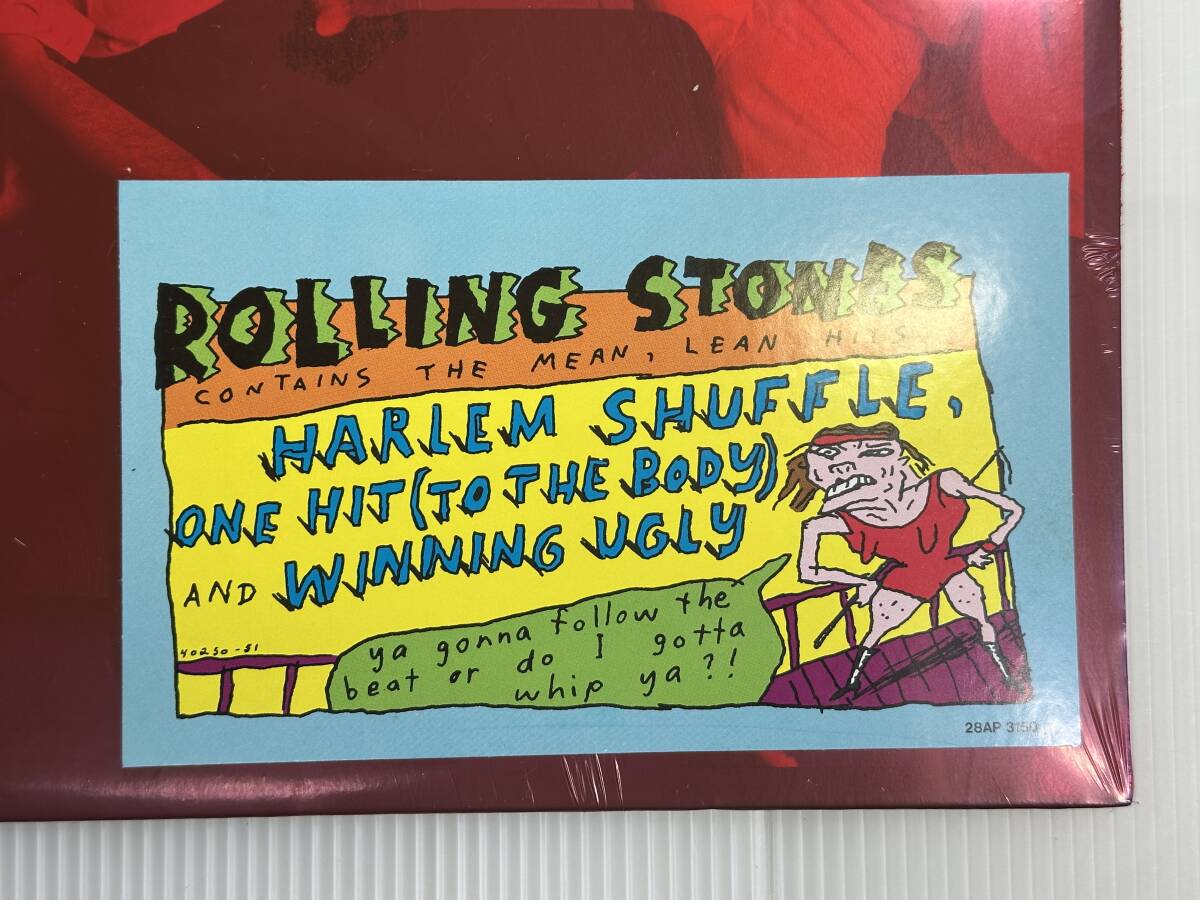 ROLLING STONES
CONTAINS THE MEAN, LEAN HITS
HARLEM SHUFFLE,
ONE HIT (TO THE BODY)
AND WINNING UGLY
ya gonna follow the
beat or do I gotta
whip ya?!
40250-S1
28AP 3150